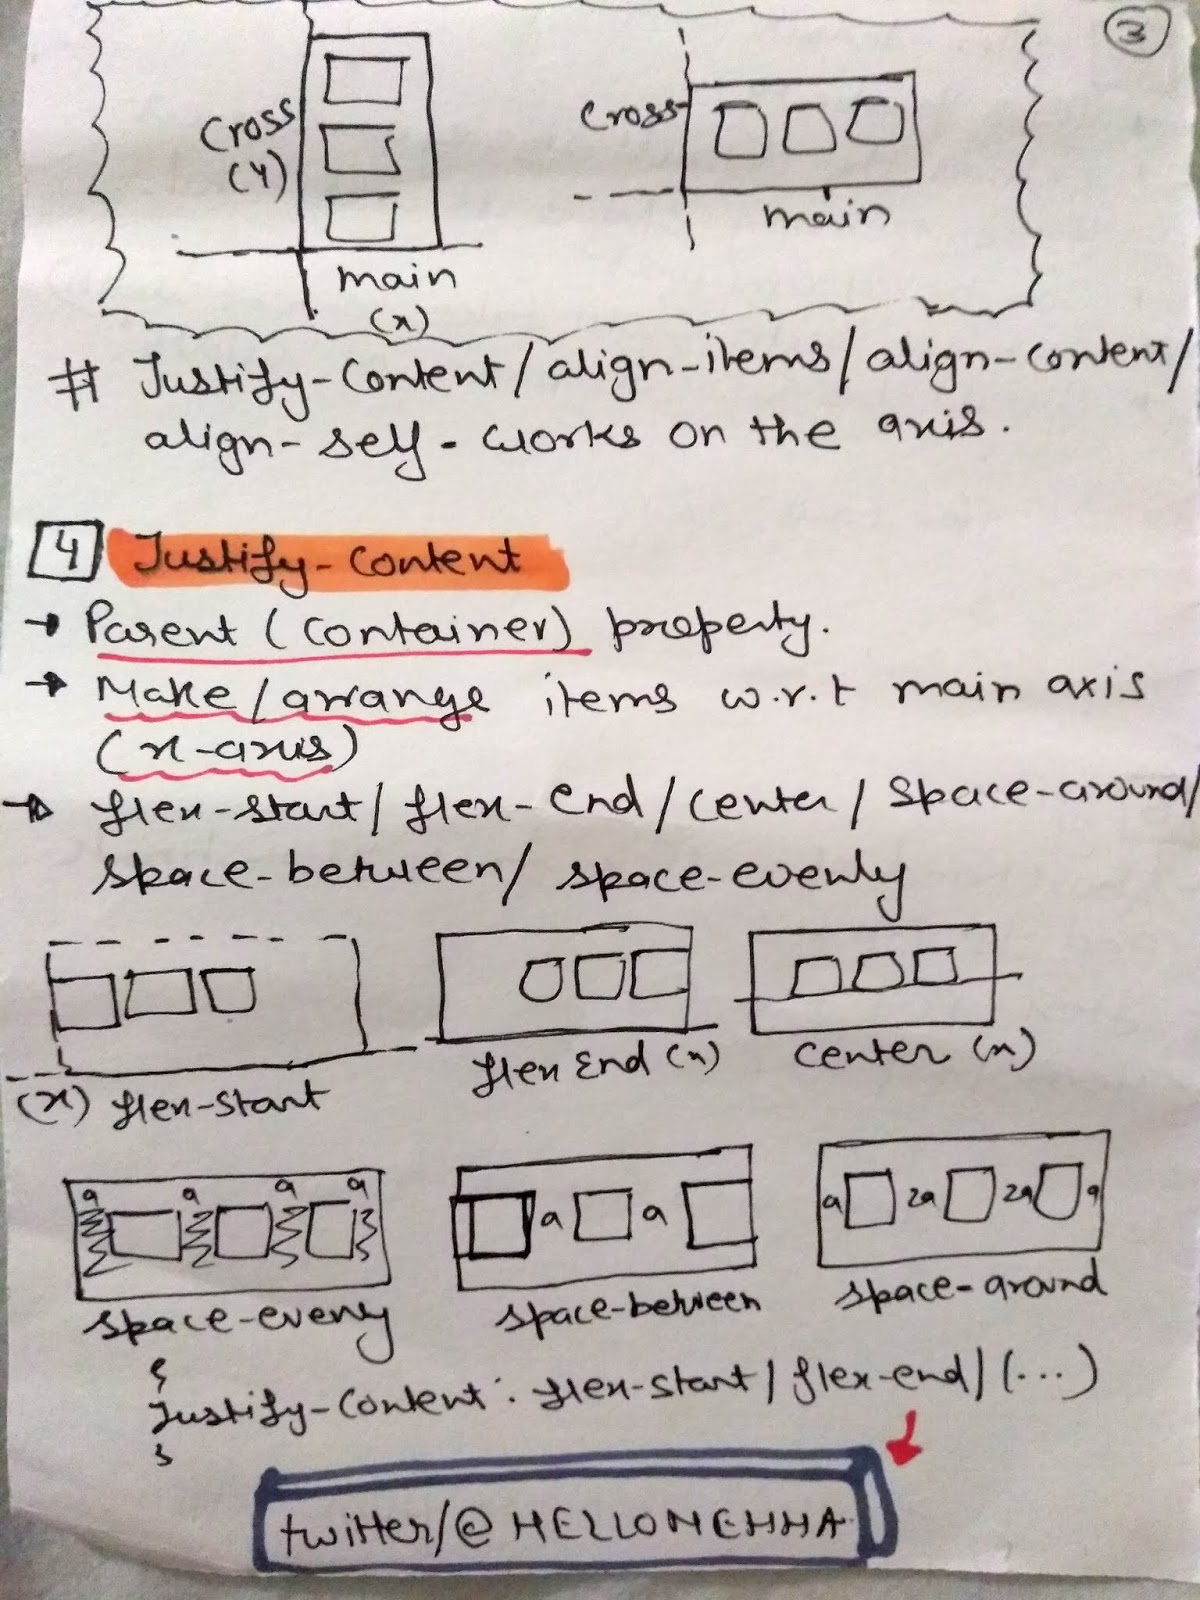 3
Cross
(y)
main
(x)
Cross
main
# Justify-Content/align-items/align-content/
align-self - works on the axis.
4 Justify-Content
→ Parent (container) property.
→ Make/arrange items w.r.t main axis
(x-axis)
→ flex-start/flex-End/center/space-around/
space-between/space-evenly
(x) flex-start
flex End (x)
center (x)
a a a a
space-eveny
a a
space-between
a 2a 2a a
space-around
{
Justify-Content: flex-start/flex-end/(...)
}
twitter/@HELLONEHHA